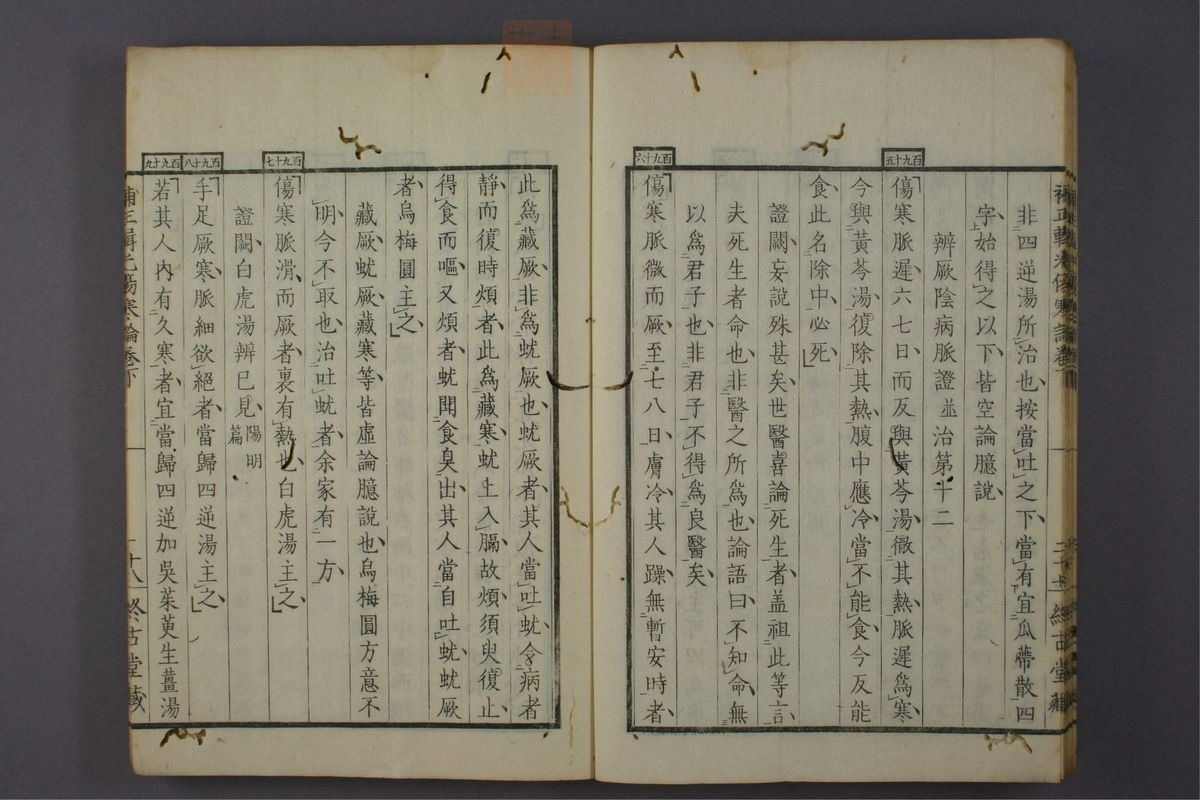 非四逆湯所治也按當吐之下當有宜瓜蔕散四
字始得之以下皆空論臆說
辨厥陰病脈證並治第十二
百九十五
傷寒脈遲六七日而反與黃芩湯徹其熱脈遲爲寒
今與黃芩湯復除其熱腹中應冷當不能食今反能
食此名除中必死
證闕妄說殊甚矣世醫喜論死生者盖祖此等言
夫死生者命也非醫之所爲也論語曰不知命無
以爲君子也非君子不得爲良醫矣
百九十六
傷寒脈微而厥至七八日膚冷其人躁無暫安時者
此爲藏厥非爲蚘厥也蚘厥者其人當吐蚘令病者
靜而復時煩者此爲藏寒蚘上入膈故煩須臾復止
得食而嘔又煩者蚘聞食臭出其人當自吐蚘蚘厥
者烏梅圓主之
藏厥蚘厥藏寒等皆虛論臆說也烏梅圓方意不
明今不取也治吐蚘者余家有一方
百九十七
傷寒脈滑而厥者裏有熱也白虎湯主之
證闕白虎湯辨已見陽明篇
百九十八
手足厥寒脈細欲絕者當歸四逆湯主之
百九十九
若其人內有久寒者宜當歸四逆加吳茱萸生薑湯
傷寒論卷下
十八
終古堂藏